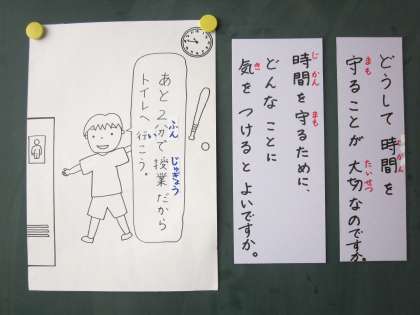 どうして 時間を
守ることが 大切なのですか。
時間を 守るために、
どんな ことに
気を つけると よいですか。
あと 2分で 授業だから
トイレへ 行こう。